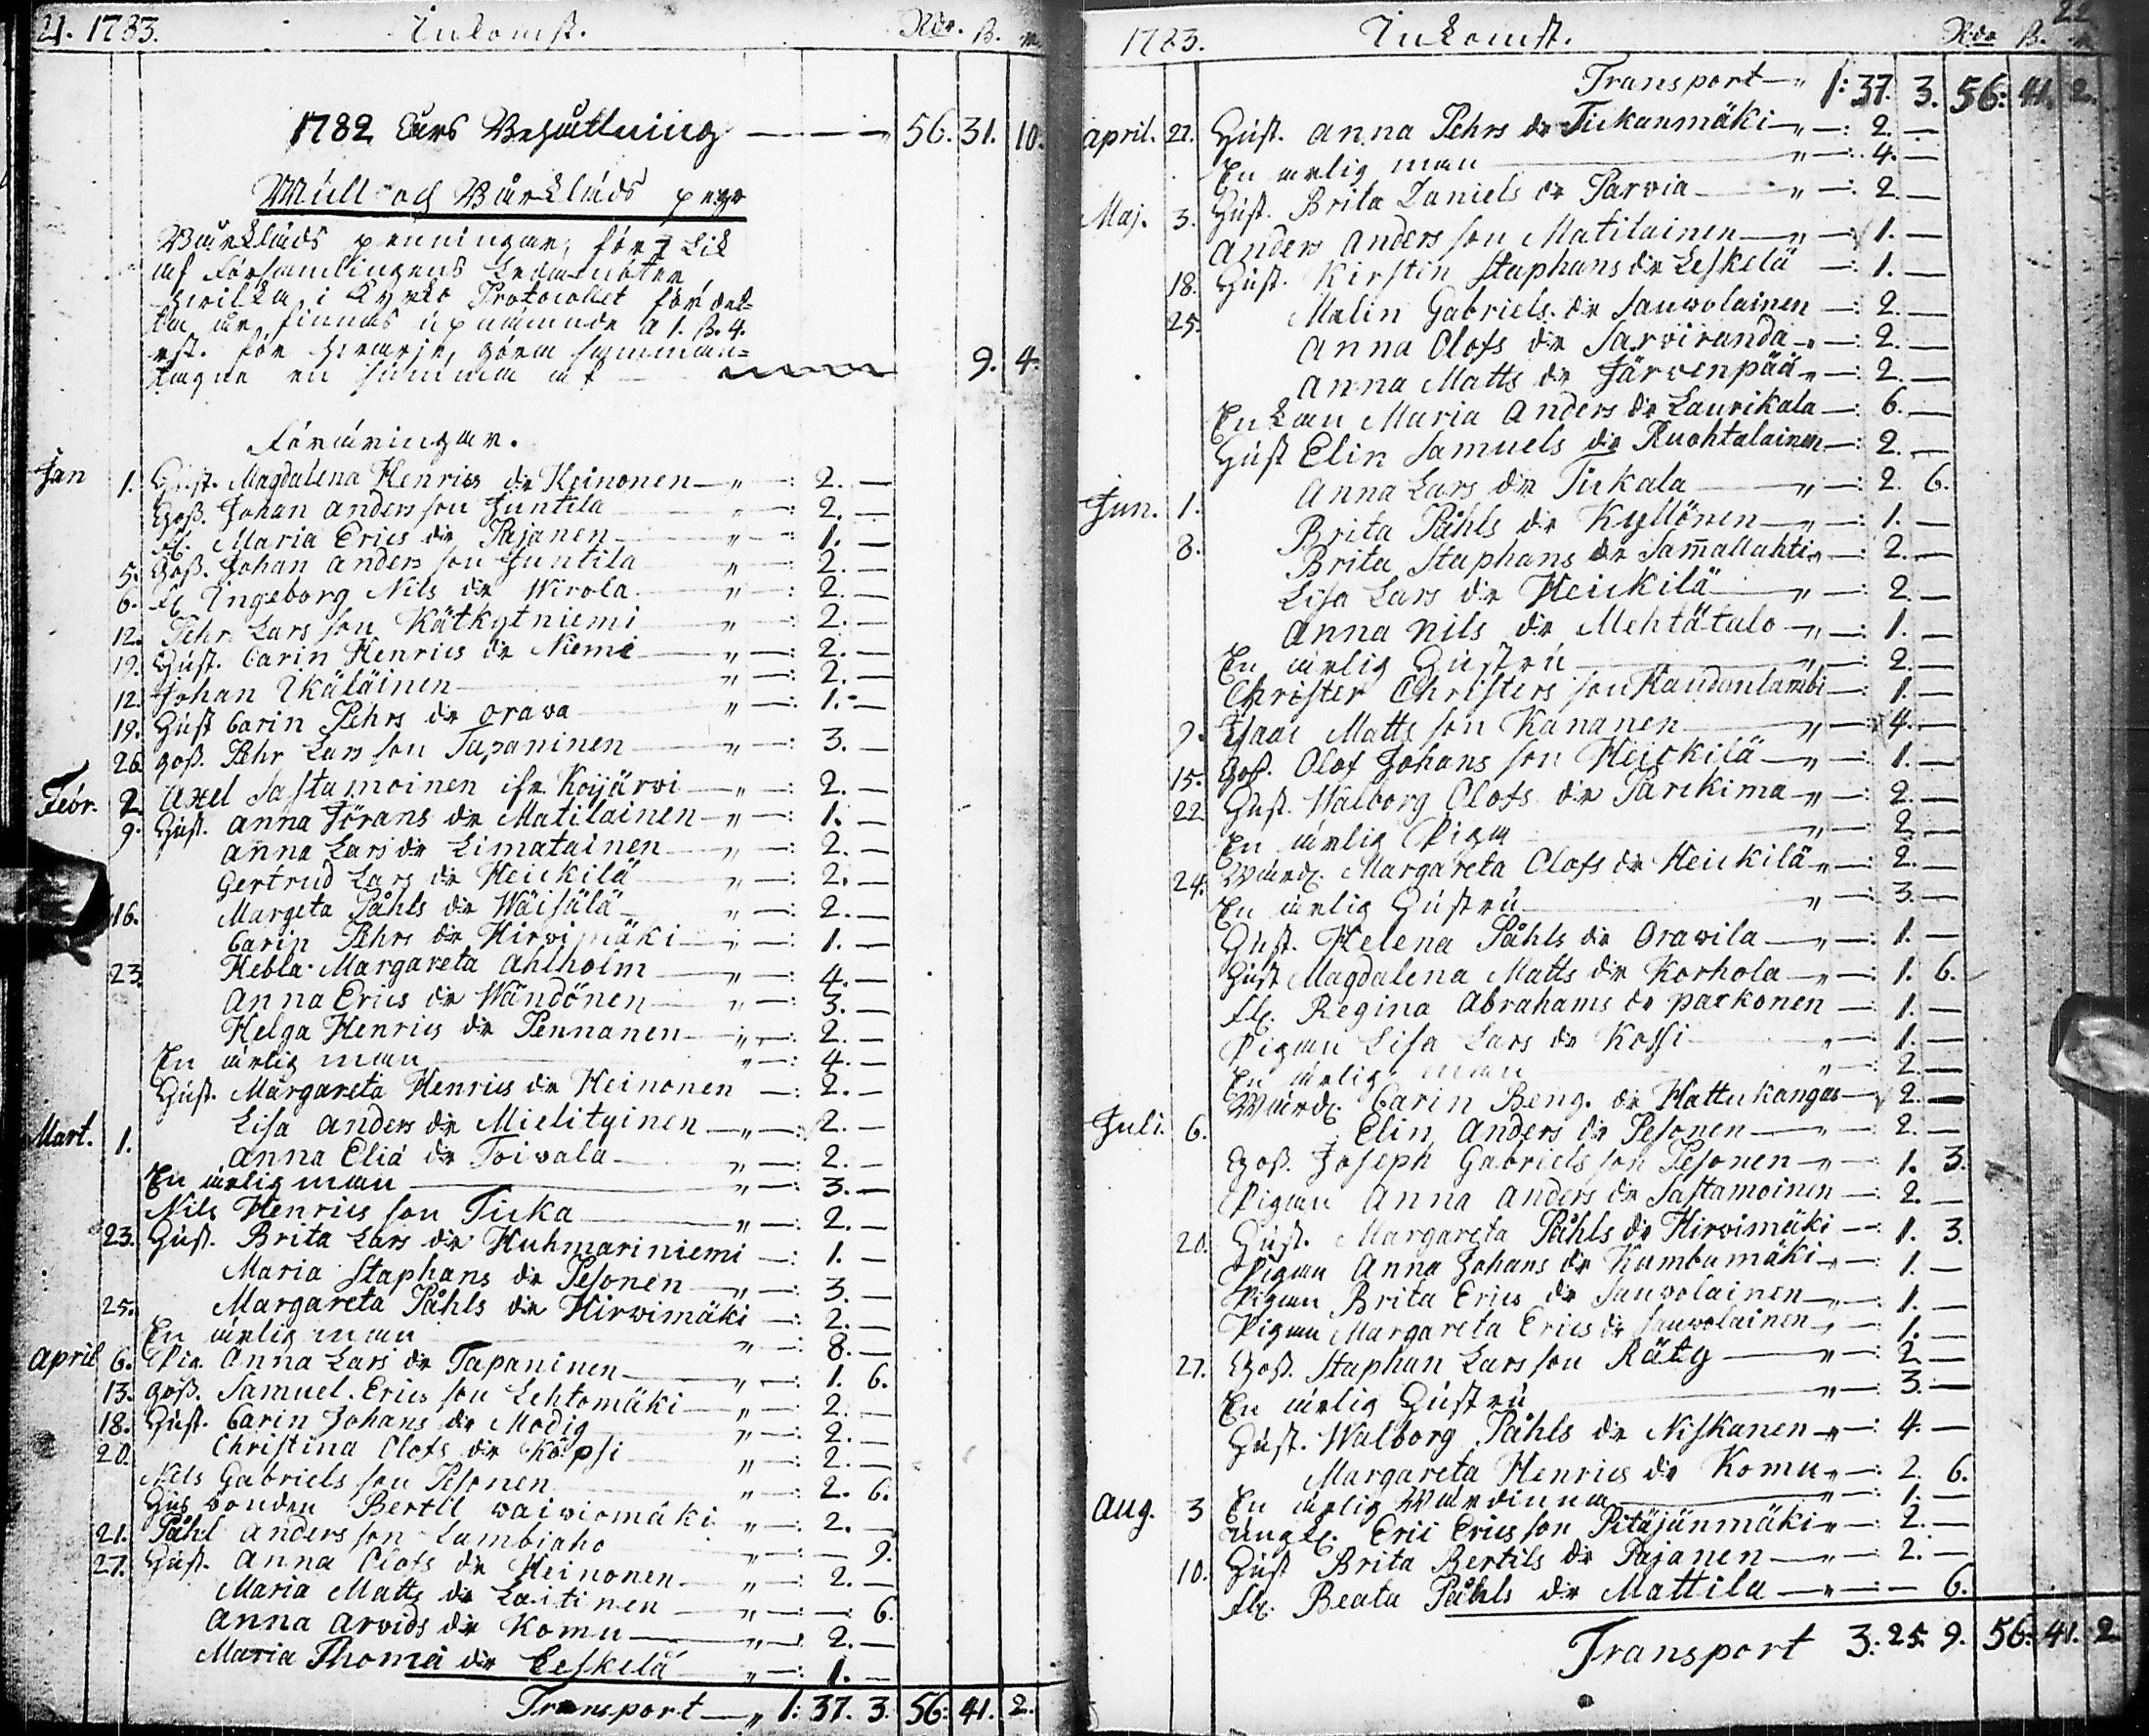 21. 1783. Inkomst. Rdr. ß. rst.
1782 Åhrs Behållning — — 56. 31. 10.
Mull och Bårkläds peng:r
Bårkläds penningar, för 7 Lik
af Församlingens Ledamöter
hwilka, i Kyrko Protocollet för det-
ta år, finnas upnämnde a 1. ß. 4.
rst. för hwarje, göra samman-
tagne en summa af 9. 4.
Föräringar.
Jan 1. Hust. Magdalena Henrics dr Heinonen — " —: 2. —
Goß. Johan Anders son Juntila " —: 2. —
Fl. Maria Erics dr Pajanen " —: 1. —
5. Goß. Johan Anders son Juntila " —: 2. —
6. Fl Ingeborg Nils dr Wirola " —: 2. —
12. Pehr Lars son Kätkytniemi " —: 2. —
19. Hust. Carin Henrics dr Niemi — " —: 2. —
12. Johan Ikäläinen " —: 2. —
19. Hust Carin Pehrs dr Orawa " —: 1. —
26. Goß. Pehr Lars son Tapaninen " —: 3. —
Febr. 2 Axel Sastamoinen ifr Koijärwi — " —: 2. —
9. Hust. Anna Jörans dr Matilainen — " —: 1. —
Anna Lars dr Limatainen " —: 2. —
Gertrud Lars dr Heickilä " —: 2. —
16. Margeta Påhls dr Wäisälä " —: 2. —
Carin Pehrs dr Hirwimäki — " —: 1. —
23. Hebla Margareta Ahlholm — " —: 4. —
Anna Erics dr Wändönen " —: 3. —
Helga Henrics dr Pennanen — " —: 2. —
En ärlig man " —: 4. —
Hust. Margareta Henrics dr Heinonen —: 2. —
Lisa Anders dr Mielityinen — " —: 2. —
Mart. 1. Anna Eliä dr Toiwala " —: 2. —
En ärlig man " —: 3. —
Nils Henrics son Ticka " —: 2. —
23. Hust. Brita Lars dr Huhmariniemi —: 1. —
Maria Staphans dr Pesonen — " —: 3. —
25. Margareta Påhls dr Hirwimäki —: 2. —
En ärlig man " —: 8. —
April 6. Pig. Anna Lars dr Tapaninen " —: 1. 6.
13. Goß. Samuel Erics son Lehtomäki — " —: 2. —
18. Hust. Carin Johans dr Modig " —: 2. —
20. Christina Olofs dr Kåpsi " —: 2. —
Nils Gabriels son Pesonen " —: 2. 6.
Husbonden Bertil waiwiomäki " —: 2. —
21. Påhl Anders son Lambiaho " —: — 9.
27. Hust. Anna Olofs dr Heinonen — " —: 2. —
Maria Matts dr Laitinen — " —: —: 6.
Anna Arvids dr Komu — " —: 2. —
Maria Thomä dr Leskelä " —: 1. —
Transport — " 1: 37. 3. 56: 41. 2.
22
1783. Inkomst. Rdr ß. rst.
Transport — " 1: 37. 3. 56: 41. 2.
April. 27. Hust. Anna Pehrs dr Tickanmäki — " —: 2. —
En ärlig man " —: 4. —
Maj. 3. Hust. Brita Daniels dr Parvia — " —: 2. —
Anders Anders son Matilainen — " —: 1. —
18. Hust. Kirstin Staphans dr Leskelä —: 1. —
25. Malin Gabriels dr Sauwolainen —: 2. —
Anna Olofs dr Sarviranda —: 2. —
Anna Matts dr Järwenpää —: 2. —
Enkan Maria Anders dr Laurikala —: 6. —
Hust Elin Samuels dr Ruohtalainen —: 2. —
Anna Lars dr Tickala — " —: 2. 6.
Jun. 1. Brita Påhls dr Kyllönen — " —: 1. —
8. Brita Staphans dr Sam̄allahti " —: 2. —
Lisa Lars dr Heickilä " —: 2. —
Anna Nils dr Mehtätalo — " —: 1. —
En ärlig Hustru " —: 2. —
Christer Christers son Haudanlambi —: 1. —
9. Isaac Matts son Kananen " —: 4. —
15. Goß. Olof Johans son Heickilä — " —: 1. —
22. Hust. Walborg Olofs dr Parckima — " —: 2. —
En ärlig Piga " —: 2. —
24. Wärd. Margareta Olofs dr Heickilä " —: 2. —
En ärlig Hustru " —: 3. —
Hust. Helena Påhls dr Orawila — " —: 1. —
Hust Magdalena Matts dr Korhola — " —: 1. 6.
Fl. Regina Abrahams dr Parkonen —: 1. —
Pigan Lisa Lars dr Kossi " —: 1. —
En ärlig man " —: 2. —
Wärd. Carin Beng. dr Hattukangas —: 2. —
Juli. 6. Elin Anders dr Pesonen — " —: 2. —
Goß. Joseph Gabriels son Pesonen — " —: 1. 3.
Pigan Anna Anders dr Sastamoinen —: 2. —
20. Hust. Margareta Påhls dr Hirwimäki —: 1. 3.
Pigan Anna Johans dr Kumbumäki — " —: 1. —
Pigan Brita Erics dr Sauwolainen — " —: 1. —
Pigan Margareta Erics dr Sauwolainen " —: 1. —
27. Goß. Staphan Lars son Räty " —: 2. —
En ärlig Hustru " —: 3. —
Hust. Walborg Påhls dr Niskanen " —: 4. —
Margareta Henrics dr Komu " —: 2. 6.
Aug. 3 En ärlig Wärdinna " —: 1. —
Ungk. Eric Ericsson Pitäjänmäki " —: 2. —
10. Hust Brita Bertils dr Pajanen — " —: 2. —
Fl. Beata Påhls dr Mattila — " —: — 6.
Transport 3. 25. 9. 56: 41. 2